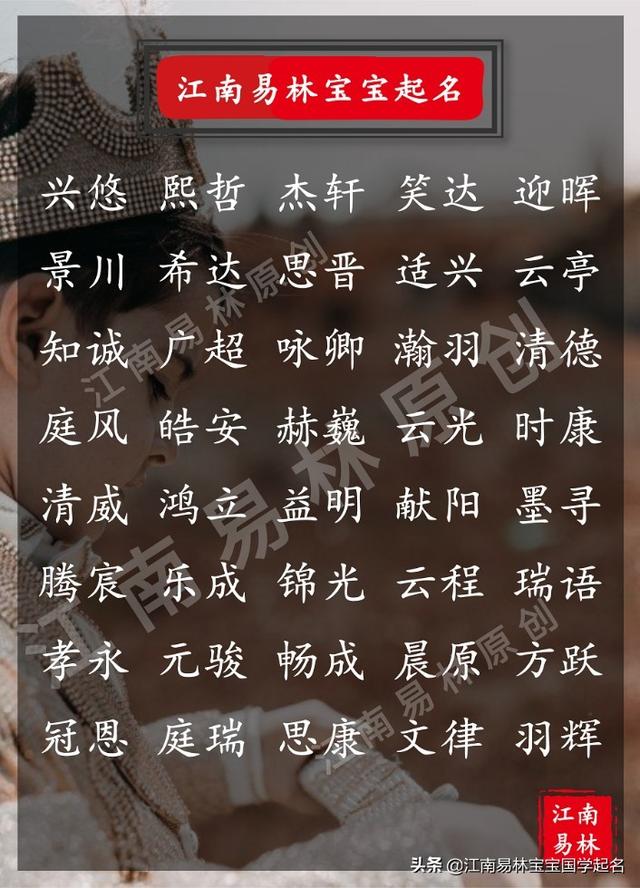 江南易林宝宝起名
兴悠 熙哲 杰轩 笑达 迎晖
景川 希达 思晋 适兴 云亭
知诚 广超 咏卿 瀚羽 清德
庭风 皓安 赫巍 云光 时康
清威 鸿立 益明 献阳 墨寻
腾宸 乐成 锦光 云程 瑞语
孝永 元骏 畅成 晨原 方跃
冠恩 庭瑞 思康 文律 羽辉
江南易林原创
江南易林原创
江南易林原创
江南
易林
头条 @江南易林宝宝国学起名